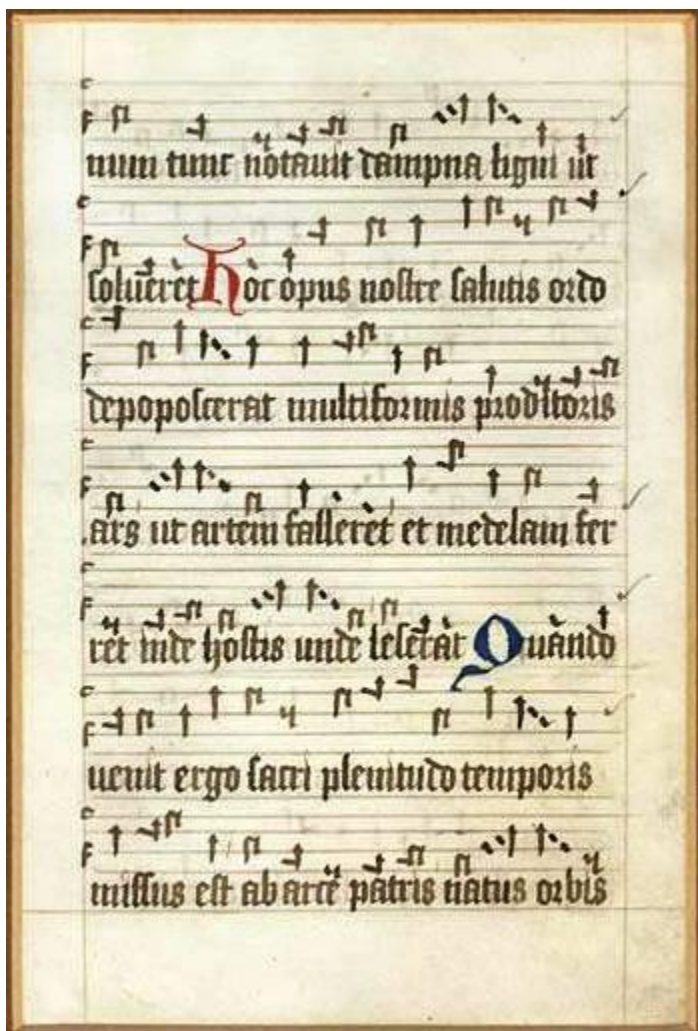 num tunc notauit dampna ligni ut
solueret Hoc opus nostre salutis ordo
depoposcerat multiformis proditoris
ars ut artem falleret et medelam fer
ret inde hostis unde leserat Quando
uenit ergo sacri plenitudo temporis
missus est ab arce patris natus orbis